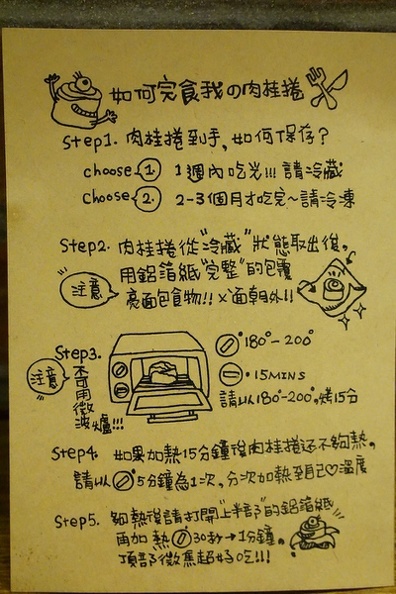 如何完食我の肉桂捲
Step1. 肉桂捲到手, 如何保存?
choose 1. 1週內吃光!!! 請冷藏
choose 2. 2-3個月才吃完~請冷凍
Step2. 肉桂捲從"冷藏"狀態取出後,
用鋁箔紙"完整"的包覆
注意
亮面包食物!! ×面朝外!!
Step3.
注意
不可用微波爐!!!
180°-200°
15MINS
請以180°-200°,烤15分
Step4. 如果加熱15分鐘後肉桂捲還不夠熱,
請以5分鐘為1次, 分次加熱到自己♡溫度
Step5. 夠熱後請打開"上半部"的鋁箔紙
再加熱30秒→1分鐘,
頂部微焦超好吃!!!